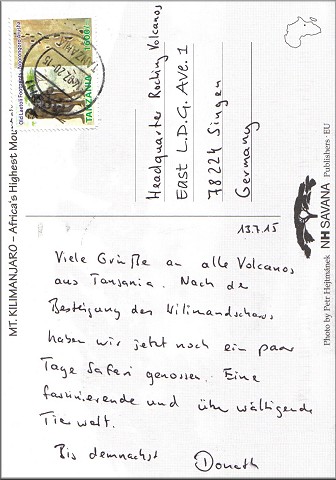 MT. KILIMANJARO – Africa's Highest Mou
Olelaetoli Footprints, Ngorongoro-Arusha
TANZANIA
Headquarter Rocking Volcanos
East L.D.G. Ave. 1
78224 Singen
Germany
13.7.15
Viele Grüße an alle Volcanos
aus Tansania. Nach der
Besteigung des Kilimandscharo
haben wir jetzt noch ein paar
Tage Safari genossen. Eine
faszinierende und überwältigende
Tierwelt.
Bis demnächst Donath
Photo by Petr Hejtmánek
NH SAVANA Publishers · EU